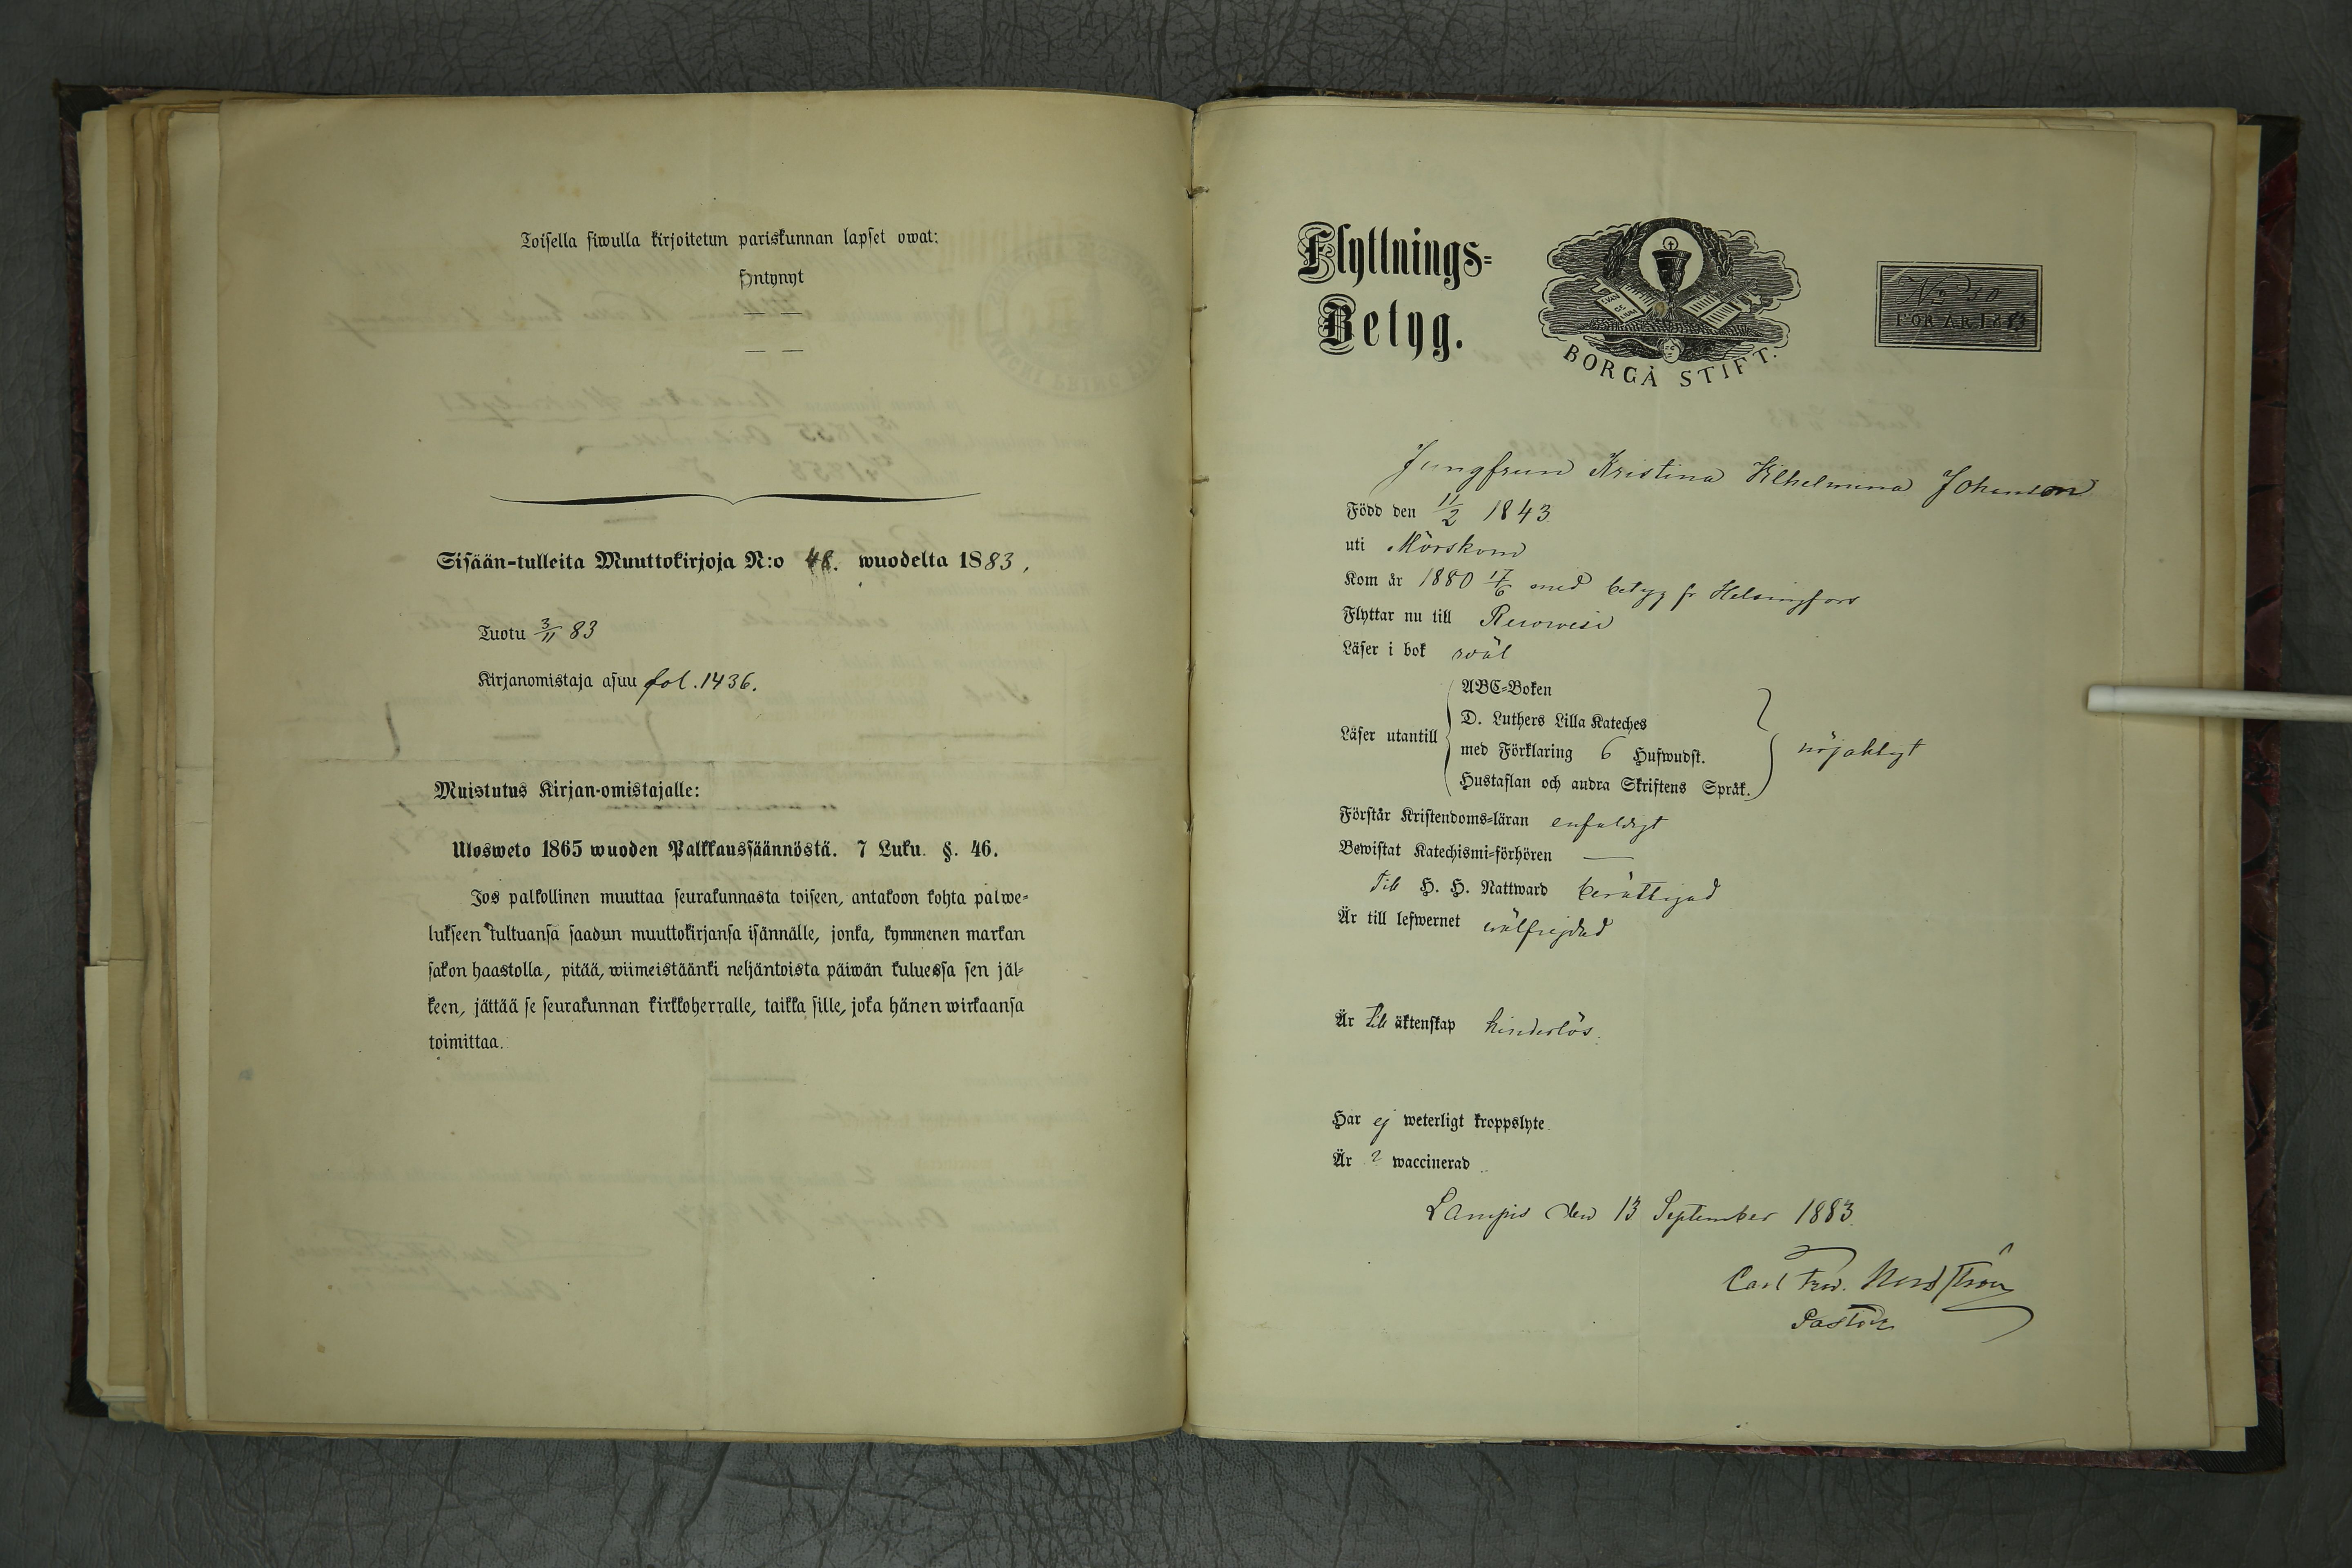 Toisella siwulla kirjoitetun pariskunnan lapset owat:
syntynyt
— —
— —
Sisään-tulleita Muuttokirjoja N:o 48. wuodelta 1883.
Tuotu 3/11 83
Kirjanomistaja asuu fol. 1436.
Muistutus Kirjan-omistajalle:
Ulosweto 1865 wuoden Palkkaussäännöstä. 7 Luku. §. 46.
Jos palkollinen muuttaa seurakunnasta toiseen, antakoon kohta palwe-
lukseen tultuansa saadun muuttokirjansa isännälle, jonka, kymmenen markan
sakon haastolla, pitää, wiimeistäänki neljäntoista päiwän kuluessa sen jäl-
keen, jättää se seurakunnan kirkkoherralle, taikka sille, joka hänen wirkaansa
toimittaa.
Flyttnings-
Betyg.
EVAN
GE
LIUM
BORGÅ STIFT.
No 30
FÖR ÅR 1883
Jungfrun Kristina Vilhelmina Johansson
Född den 11/2 1843
uti Mörskom
Kom år 1880 17/6 med betyg fr Helsingfors
Flyttar nu till
Läser i bok wäl
Läser utantill
ABC-Boken
D. Luthers Lilla Kateches
med Förklaring 6 Hufwudst.
Hustaflan och andra Skriftens Språk.
nöjaktigt
Förstår Kristendoms-läran enfaldigt
Bewistat Katechismi-förhören —
Till H. H. Nattward berättigad
Är till lefwernet wälfrejdad
Är till äktenskap hinderlös.
Har ej weterligt kroppslyte
Är ? waccinerad
Lampis den 13 September 1883.
Carl Fred. Nordström
Pastor